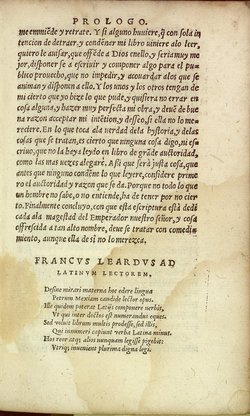 PROLOGO.
me emmiēde y retrate. Y si alguno huuiere, q̄ con sola in
tencion de detraer, y condēner mi libro viniere alo leer,
quiero le auisar, que offēde a Dios enello, y seria muy me
jor, disponer se a escriuir y componer algo para el pu-
blico prouecho, que no impedir, y acouardar alos que se
animan y disponen a ello. Y los vnos y los otros tengan de
mi cierto que yo hize lo que pude, y quisiera no errar en
cosa alguna, y hazer muy perfecta mi obra, y deuē de bue
na razon acceptar mi intētion, y desseo, si ella no lo me-
reciere. En lo que toca ala verdad dela hystoria, y delas
cosas que se tratan, es cierto que ninguna cosa digo, ni es-
criuo, que no la haya leydo en libro de grāde auctoridad,
como las mas vezes alegarè. A si que serà justa cosa, que
antes que ninguno condene lo que leyere, considere prime
ro el auctoridad y razon que se da. Porque no todo lo que
vn hombre no sabe, o no entiende, ha de tener por no cier
to. Finalmente concluyo, con que esta escriptura està dedi
cada ala magestad del Emperador nuestro señor, y cosa
offrescida a tan alto nombre, deue se tratar con comedi-
miento, aunque ella de si no lo merezca.
FRANCVS LEARDVS AD
LATINVM LECTOREM.
Desine mirari materna hoc edere lingua
Petrum Mexiam candide lector opus.
Ille quidem poterat Latijs componere verbis,
Vt qui inter doctos est numerandus eques.
Sed voluit librum multis prodesse, sed illis,
Qui innumeri capiunt verba Latina minus.
Hos reor atq; alios nunquam legisse pigebit:
Vtriq; inuenient plurima digna legi.